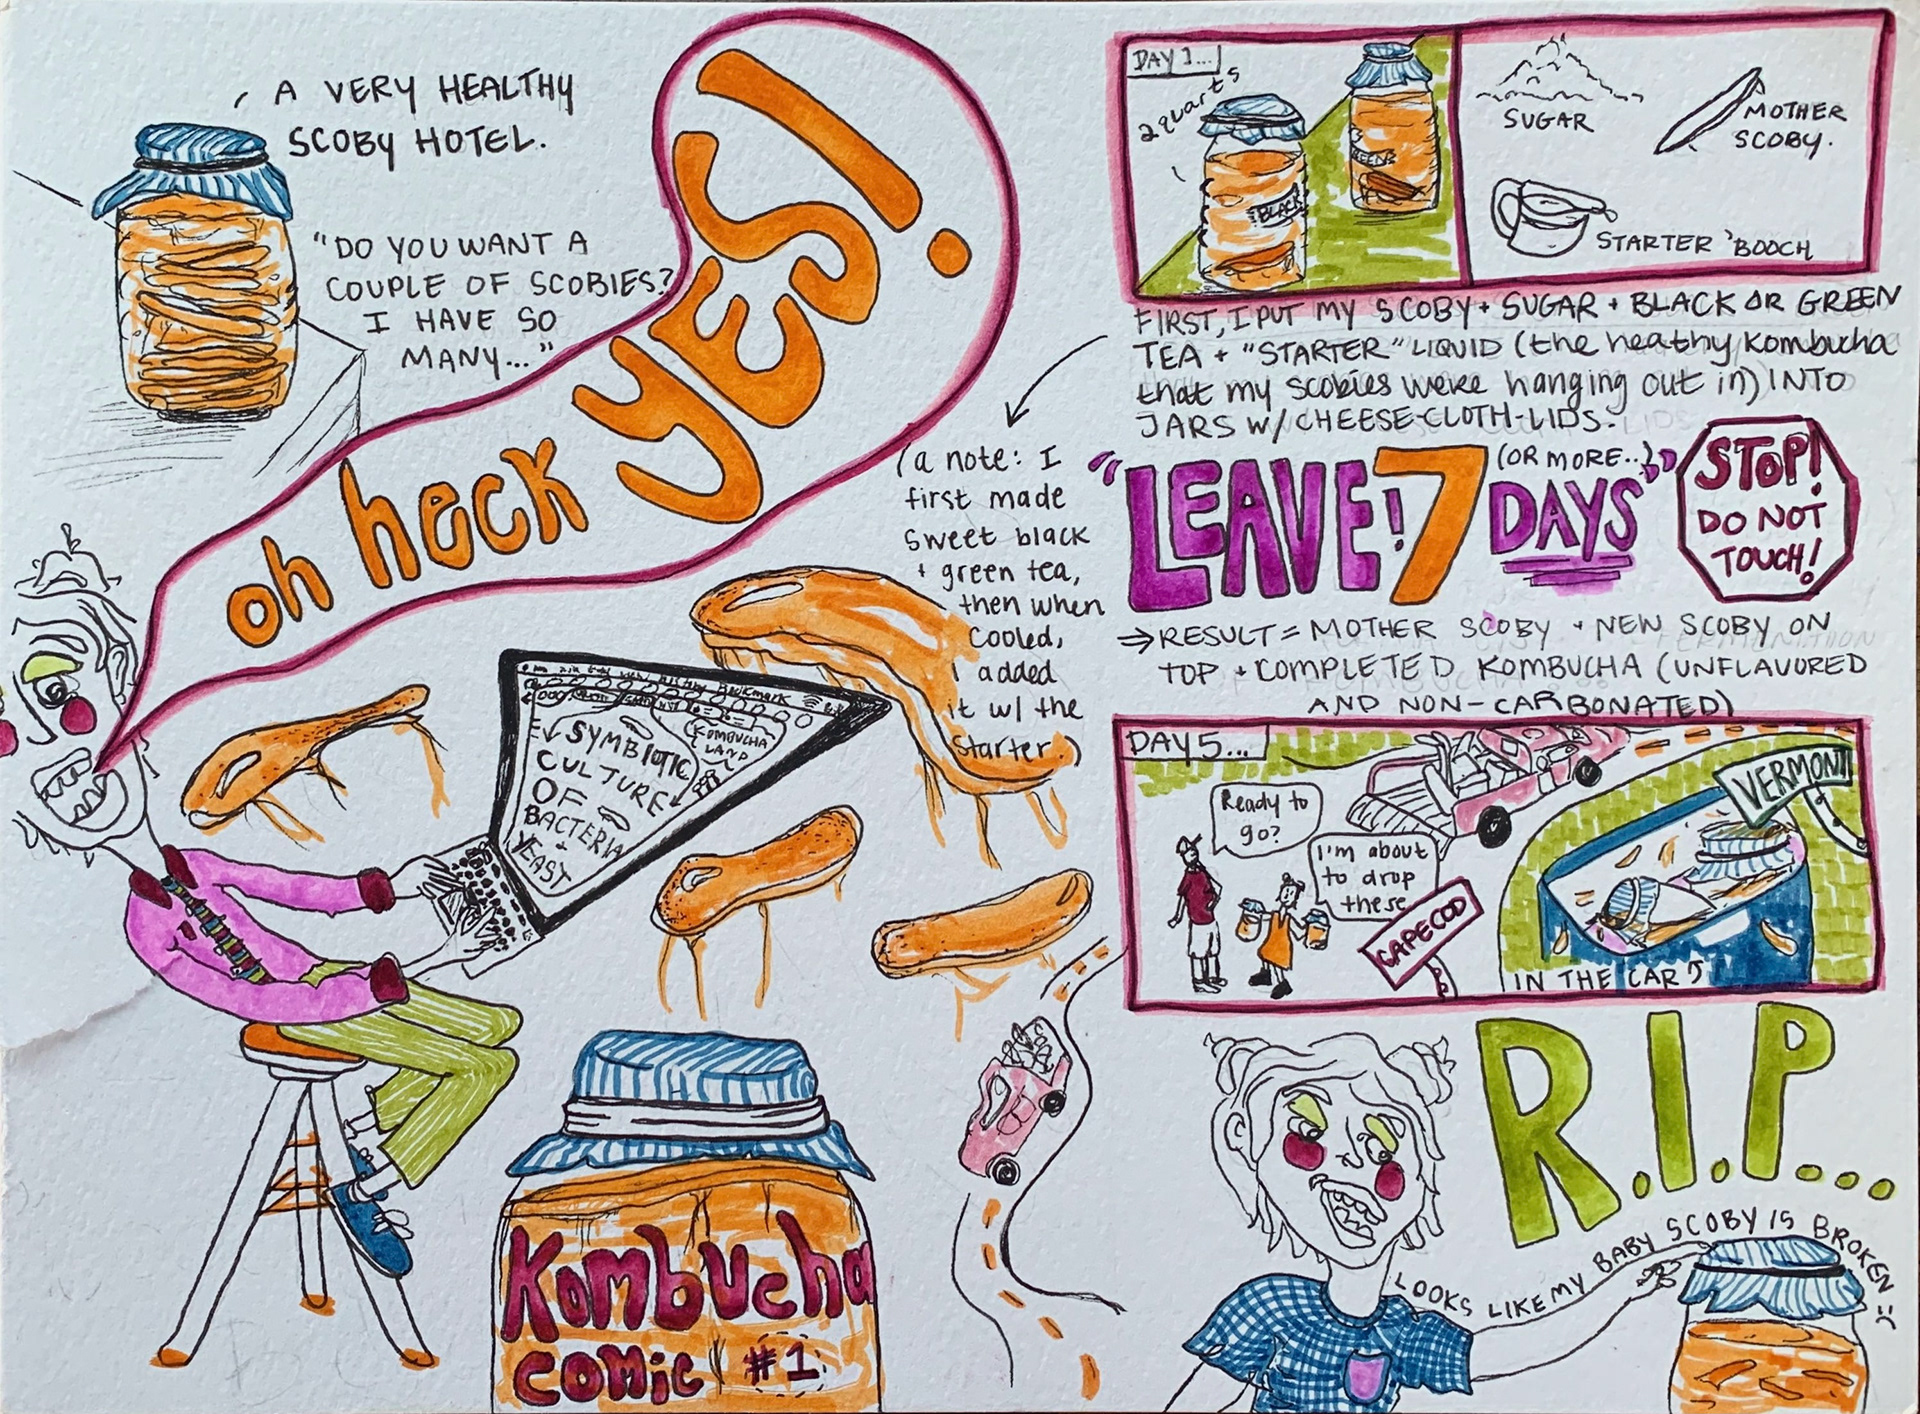 A VERY HEALTHY
SCOBY HOTEL.
"DO YOU WANT A
COUPLE OF SCOBIES?
I HAVE SO
MANY..."
oh heck YES!
SYMBIOTIC
CULTURE
OF
BACTERIA
+
YEAST
KOMBUCHA
LAND
Kombucha
comic #1
DAY 1...
2 quarts
BLACK
GREEN
SUGAR
MOTHER
SCOBY.
STARTER 'BOOCH
FIRST, I PUT MY SCOBY + SUGAR + BLACK OR GREEN
TEA + "STARTER" LIQUID (the heathy kombucha
that my scobies were hanging out in) INTO
JARS W/ CHEESE-CLOTH-LIDS.
(a note: I
first made
sweet black
+ green tea,
then when
cooled,
I added
it w/ the
starter.)
"LEAVE! 7 DAYS"
(OR MORE...)
STOP!
DO NOT
TOUCH!
→ RESULT = MOTHER SCOBY + NEW SCOBY ON
TOP + COMPLETED KOMBUCHA (UNFLAVORED
AND NON-CARBONATED)
DAY 5...
Ready to
go?
I'm about
to drop
these
CAPE COD
VERMONT
IN THE CAR
R.I.P...
LOOKS LIKE MY BABY SCOBY IS BROKEN :(